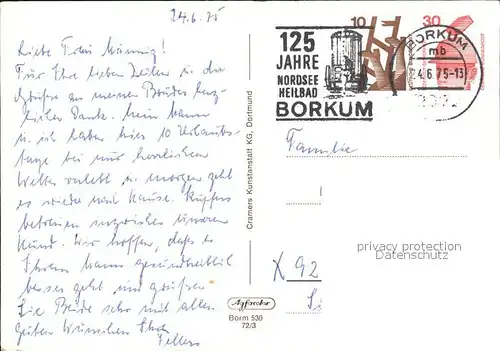 24.6.75
Liebe Frau
Für Ihre lieben Zeilen u. die
Grüße an meinen Bruder herz-
lichen Dank. Mein Mann
u. ich haben hier 10 Urlaubs-
tage bei nur herrlichem
Wetter verlebt u. morgen geht
es wieder nach Hause. Küppers
betreuen inzwischen unseren
Hund. Wir hoffen, dass es
Ihrem Mann gesundheitlich
besser geht und grüßen
Sie Beide sehr mit allen
guten Wünschen Ihre
Cramers Kunstanstalt KG, Dortmund
Agfacolor
Borm 530
72/3
125
JAHRE
NORDSEE
HEILBAD
BORKUM
10
30
BORKUM
mb
24.6.75-13
Familie
privacy protection
Datenschutz
X 92